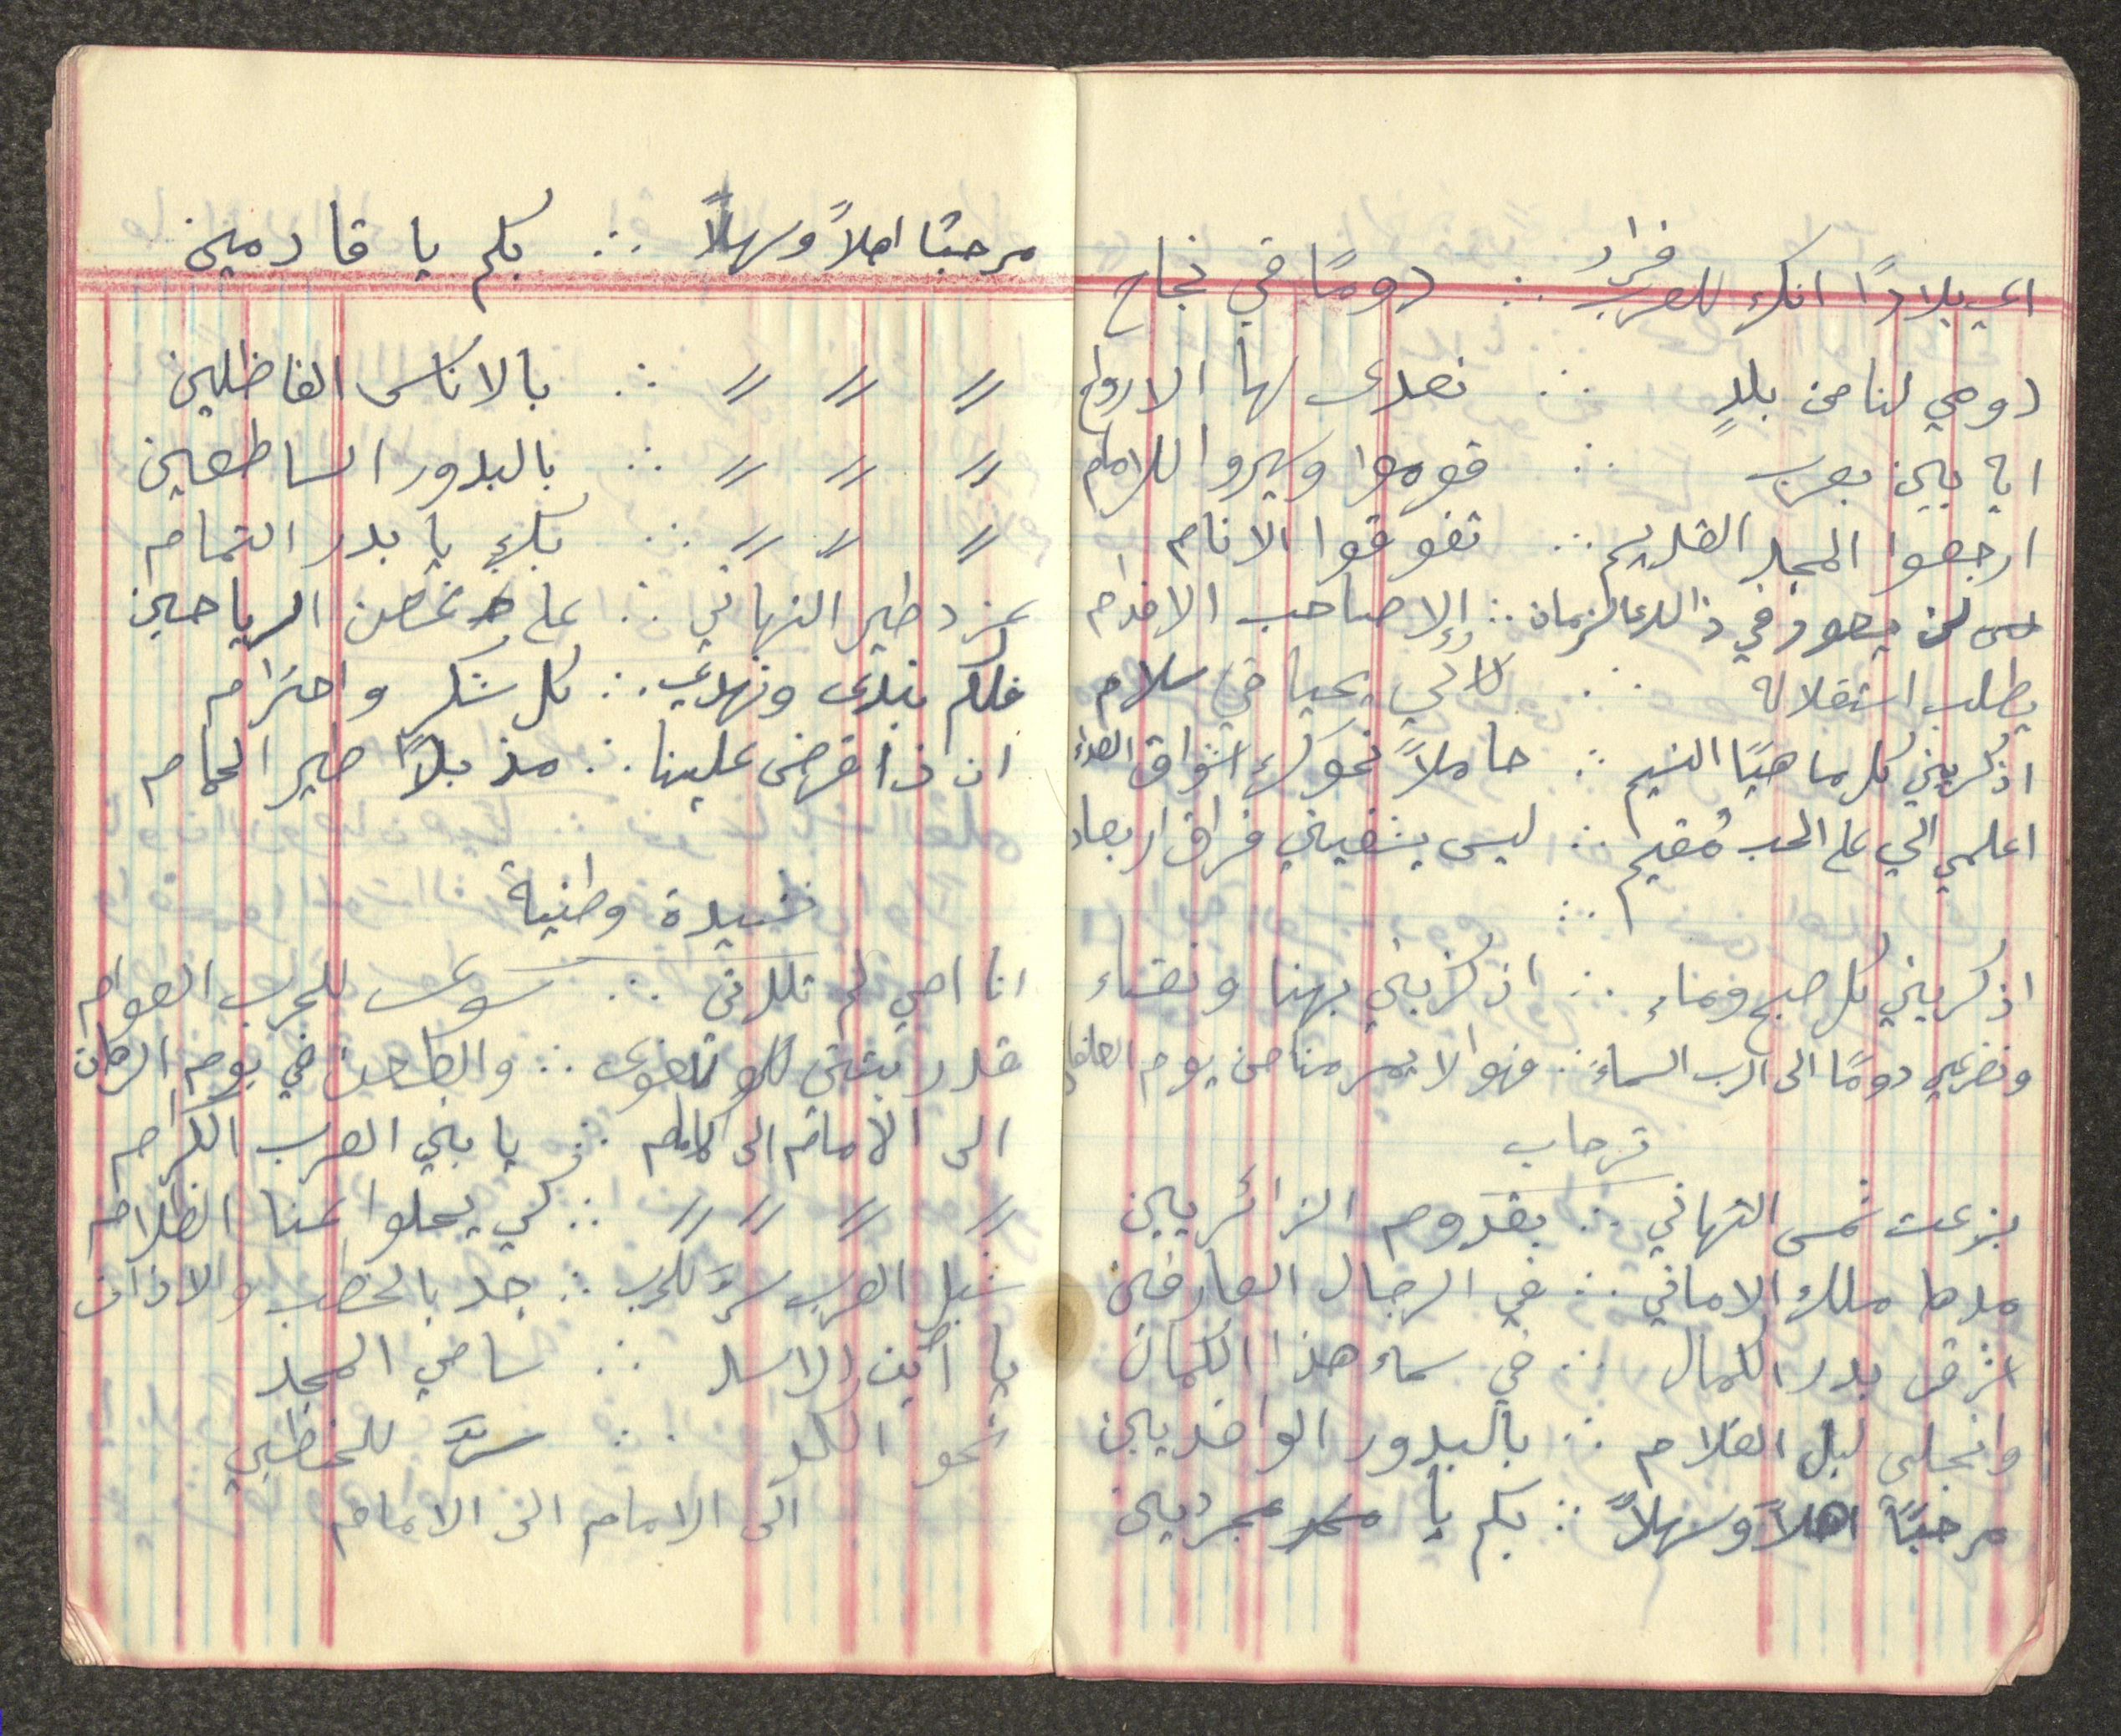 فراد
اي بلادًا انك للعرب ∴ دومًا في نجاح
دومي لنا من بلدٍ ∴ نهدى لها الارواح
ايه بين يعرب ∴ قوموا وسيروا للامام
ارجعوا المجد القديم ∴ تفوقوا الانام
لن يعود في ذالك الزمان ∴ إلا صاحب الاقدام
يطلب استقلاله ∴ كي يحيا في سلام
اذكريني كل ما هبًا النسيم ∴ حاملاً نحوك اشواق
اعلمي اني على الحب مُقيم ∴ ليس يشفيني فراق او بعاد
∴
اذكريني كل صبح ومساء ∴ اذكريني بهنا ونقاء
وتضرعي دومًا الى الرب السماء ∴ فهوا لا يمر منا من يوم
ترحاب
بزعت شمس التهاني ∴ بقدوم الزائريين
مدها ملك الاماني ∴ في الرجال العارفين
اشرق بدر الكمال ∴ في سماء هذا الكمان
وانجلى ليل الظلام ∴ بالبدور الوافديين
مرحبًا اهلاً وسهلاً ∴ بكم يا
مرحبًا اهلاً وسهلاً ∴ بكم يا قادمين
〃 〃 〃 ∴ بالاناس الفاظلين
〃 〃 〃 ∴ بالبدور الساطعين
〃 〃 〃 ∴ بكِ يا بدر التمام
غرد طير التهاني ∴ على غصن الرياحين
فلكم نبدى ونهدي ∴ كل شكر واحترام
ان ذا فرض علينا ∴ مذ بلاً طير الحمام
نشيدة وطنية
انا امي لم تلدني ∴ سوى للحرب العوام
قدر بتتى ∴ والطاحن في يوم الرهان
الى الامام الى الامام ∴ يا بني العرب الكرام
〃 〃 〃 〃 ∴ كي يجلوا عنا الظلام
شبل العرب سِرَّ للحرب ∴ جد بالخطب والاذان
يا اين الاسد ∴ سامي المجد
نحو اللد ∴ سِرَّ للخطبي
الى الامام الى الامام